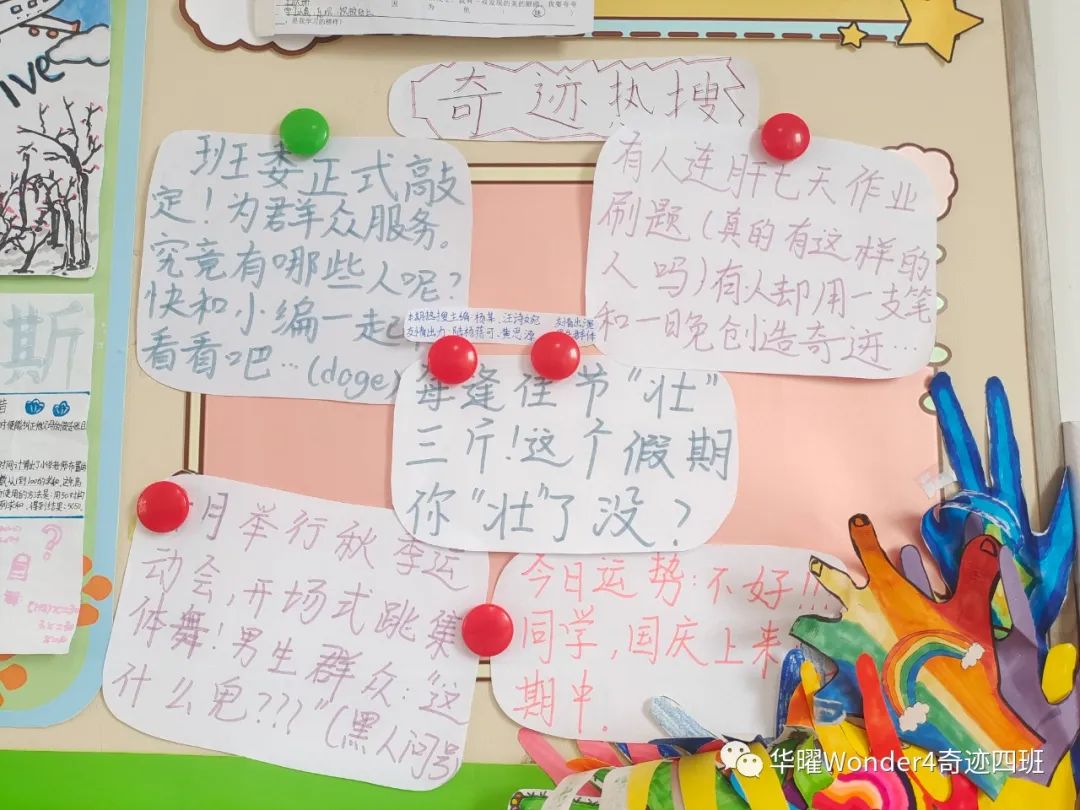 ive
奇迹热搜
班委正式敲
定!为群众服务。
究竟有哪些人呢?
快和小编一起
看看吧…(doge)
有人连肝七天作业
刷题(真的有这样的
人吗)有人却用一支笔
和一晚创造奇迹…
本期热搜主编:杨
友情出力:
每逢佳节"壮"
三斤!这个假期
你"壮"了没?
月举行秋季运
动会,开场式跳集
体舞!男生群众:"这
什么鬼???"(黑人问号
今日运势:不好!!!
同学,国庆上来
期中.
斯
华曜Wonder4奇迹四班